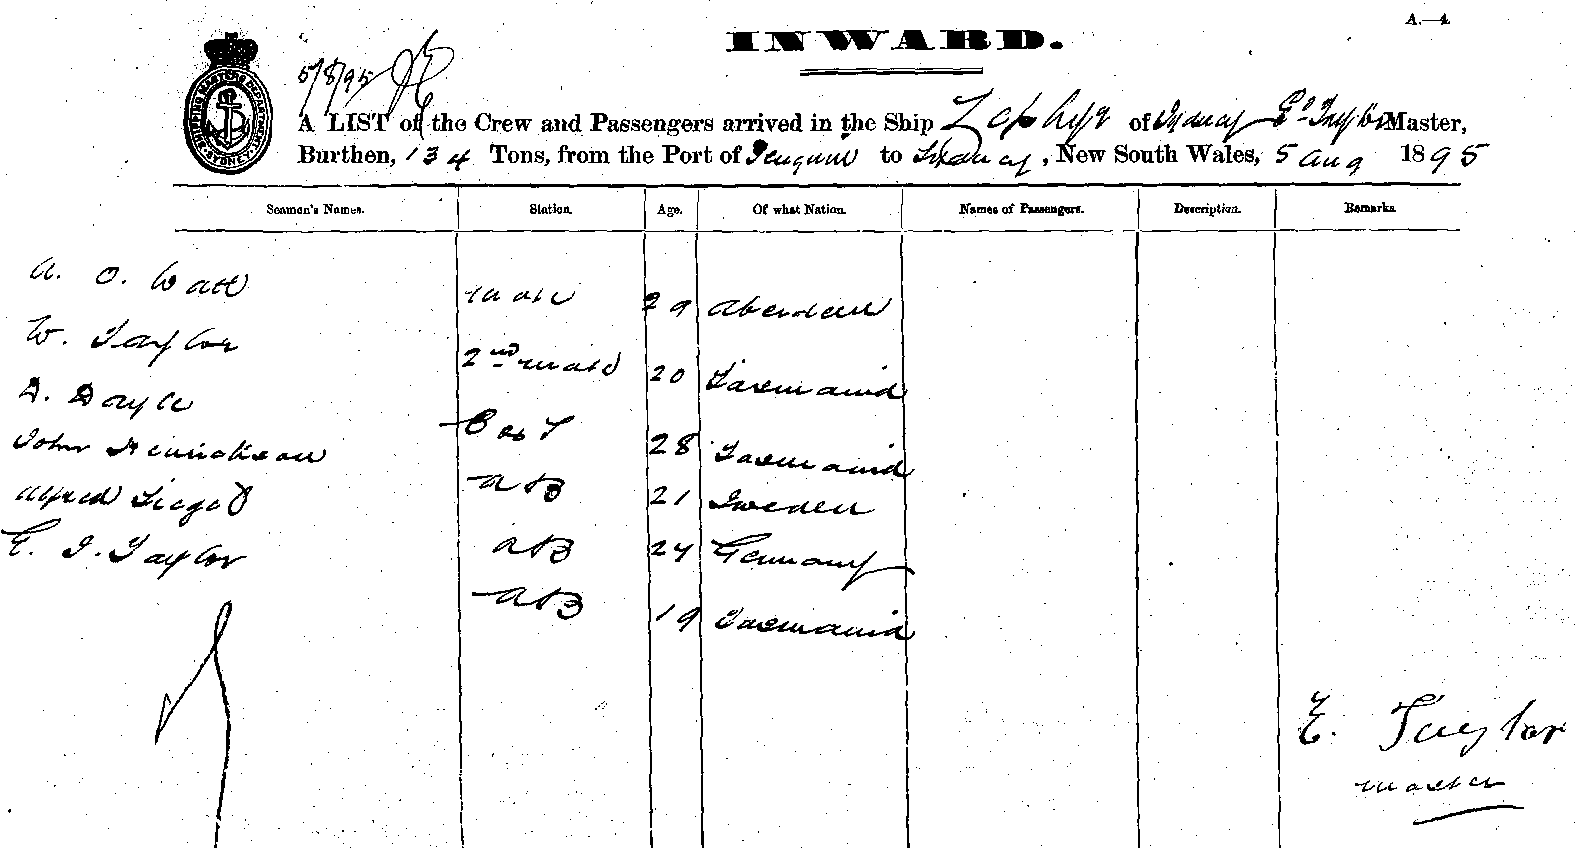 A.—4
INWARD.
5/8/95
SHIPPING MASTERS DEPARTMENT SYDNEY
A LIST of the Crew and Passengers arrived in the Ship Zephyr of Sydney E. Taylor Master,
Burthen, 134 Tons, from the Port of Penguin to Sydney, New South Wales, 5 Aug 1895
Seamen's Names. Station. Age. Of what Nation. Names of Passengers. Description. Remarks.
A. O. Watt Mate 29 Aberdeen
W. Taylor 2nd Mate 20 Tasmania
D. Doyle 28 Tasmania
John Henrickson AB 21 Sweden
Alfred AB 24 Germany
E. J. Taylor AB 19 Tasmania
E. Taylor
Master